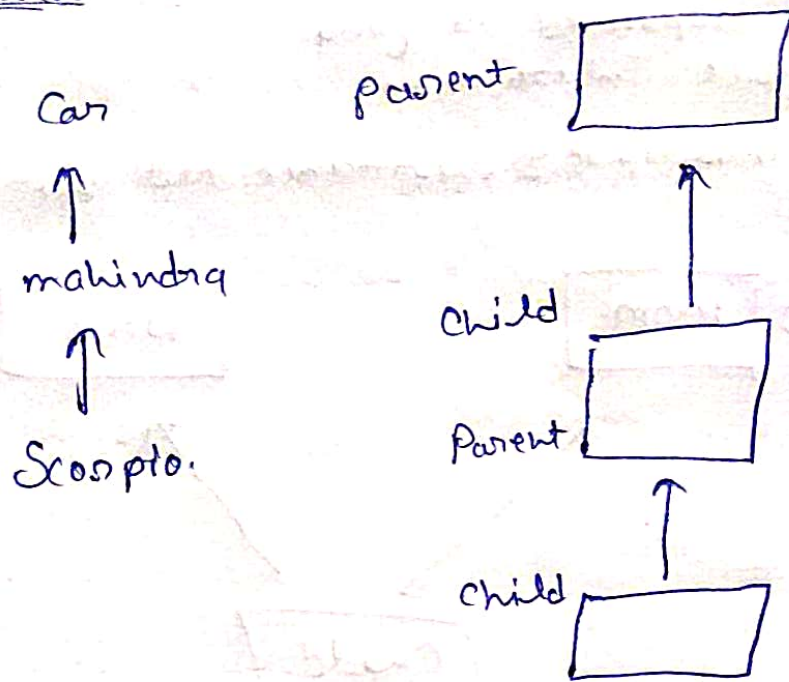 Car
mahindra
Scorpio.
parent
child
Parent
child